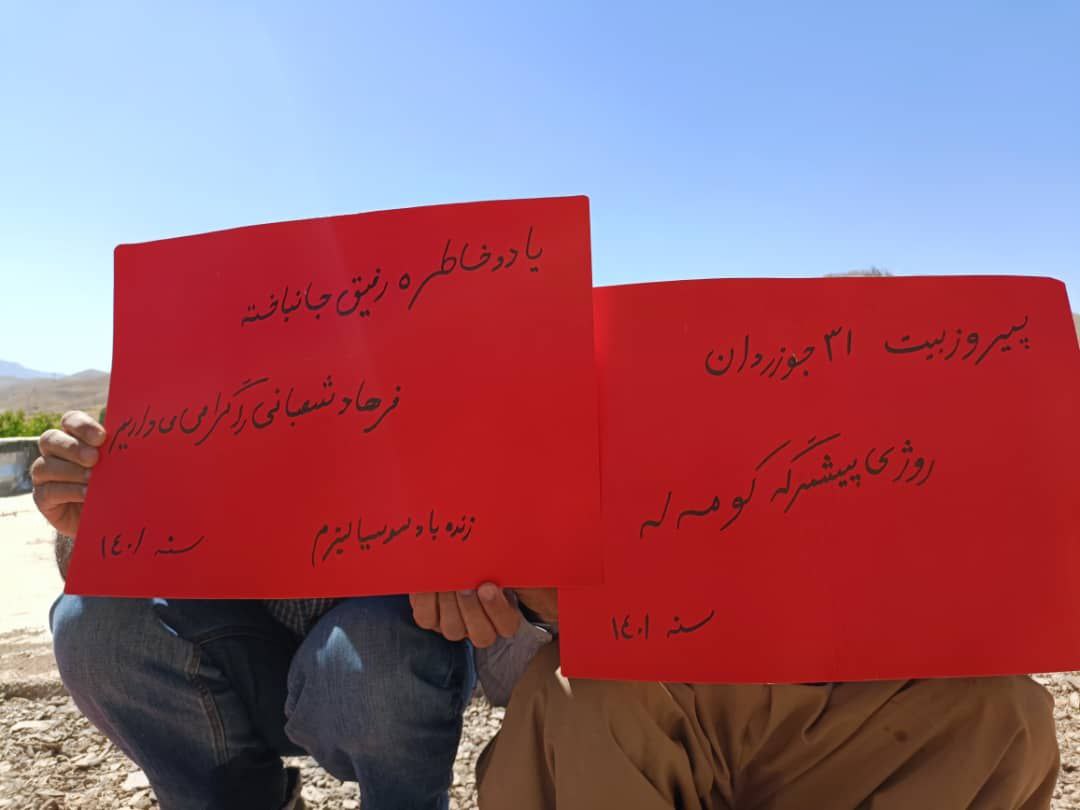 یاد و خاطره رفیق جانباخته
فرهاد شعبانی را گرامی می داریم
زنده باد سوسیالیزم
سنه ١٤٠١
پیروز بیت ٣١ جوزردان
روژی پیشمرگه کومه له
سنه ١٤٠١